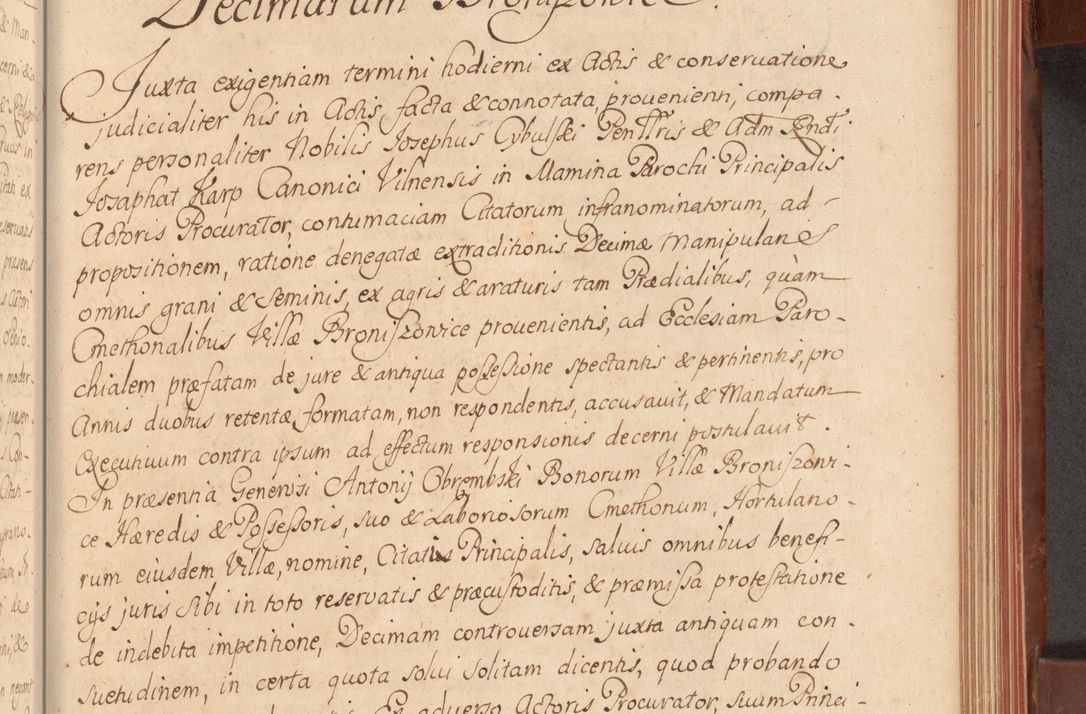 Decimarum Broniszovice.
Juxta exigentiam termini hodierni ex Actis & conservatione
judicialiter his in Actis facta & connotata, provenienti, compa-
rens personaliter Nobilis Josephus Cybulski Perillris & Adm Rndi
Josaphat Karp Canonici Vilnensis in Mamina Parochi Principalis
Actoris Procurator, contumaciam Citatorum infranominatorum, ad-
propositionem, ratione denegatæ extraditionis Decimæ Manipularis
omnis grani & Seminis, ex agris & araturis tam Prædialibus, quàm
Cmethonalibus Villæ Broniszovice provenientis, ad Ecclesiam Paro-
chialem præfatam de jure & antiqua possessione spectantis & pertinentis, pro
Annis duobus retentæ, formatam, non respondentis, accusavit, & Mandatum
Executivum contra ipsum ad effectum responsionis decerni postulavit.
In præsentia Generosi Antonij Obrembski Bonorum Villæ Broniszovi-
ce Hæredis & Possessoris, suo & Laboriosorum Cmethonum, Hortulano-
rum eiusdem Villæ, nomine, Citatis Principalis, salvis omnibus benefi-
cijs juris sibi in toto reservatis & præcustoditis, & præmissa protestatione
de indebita impetitione, Decimam controversam juxta antiquam con-
suetudinem, in certa quota solvi solitam dicentis, quod probando
Ex adverso Actoris Procurator, suum Princi-